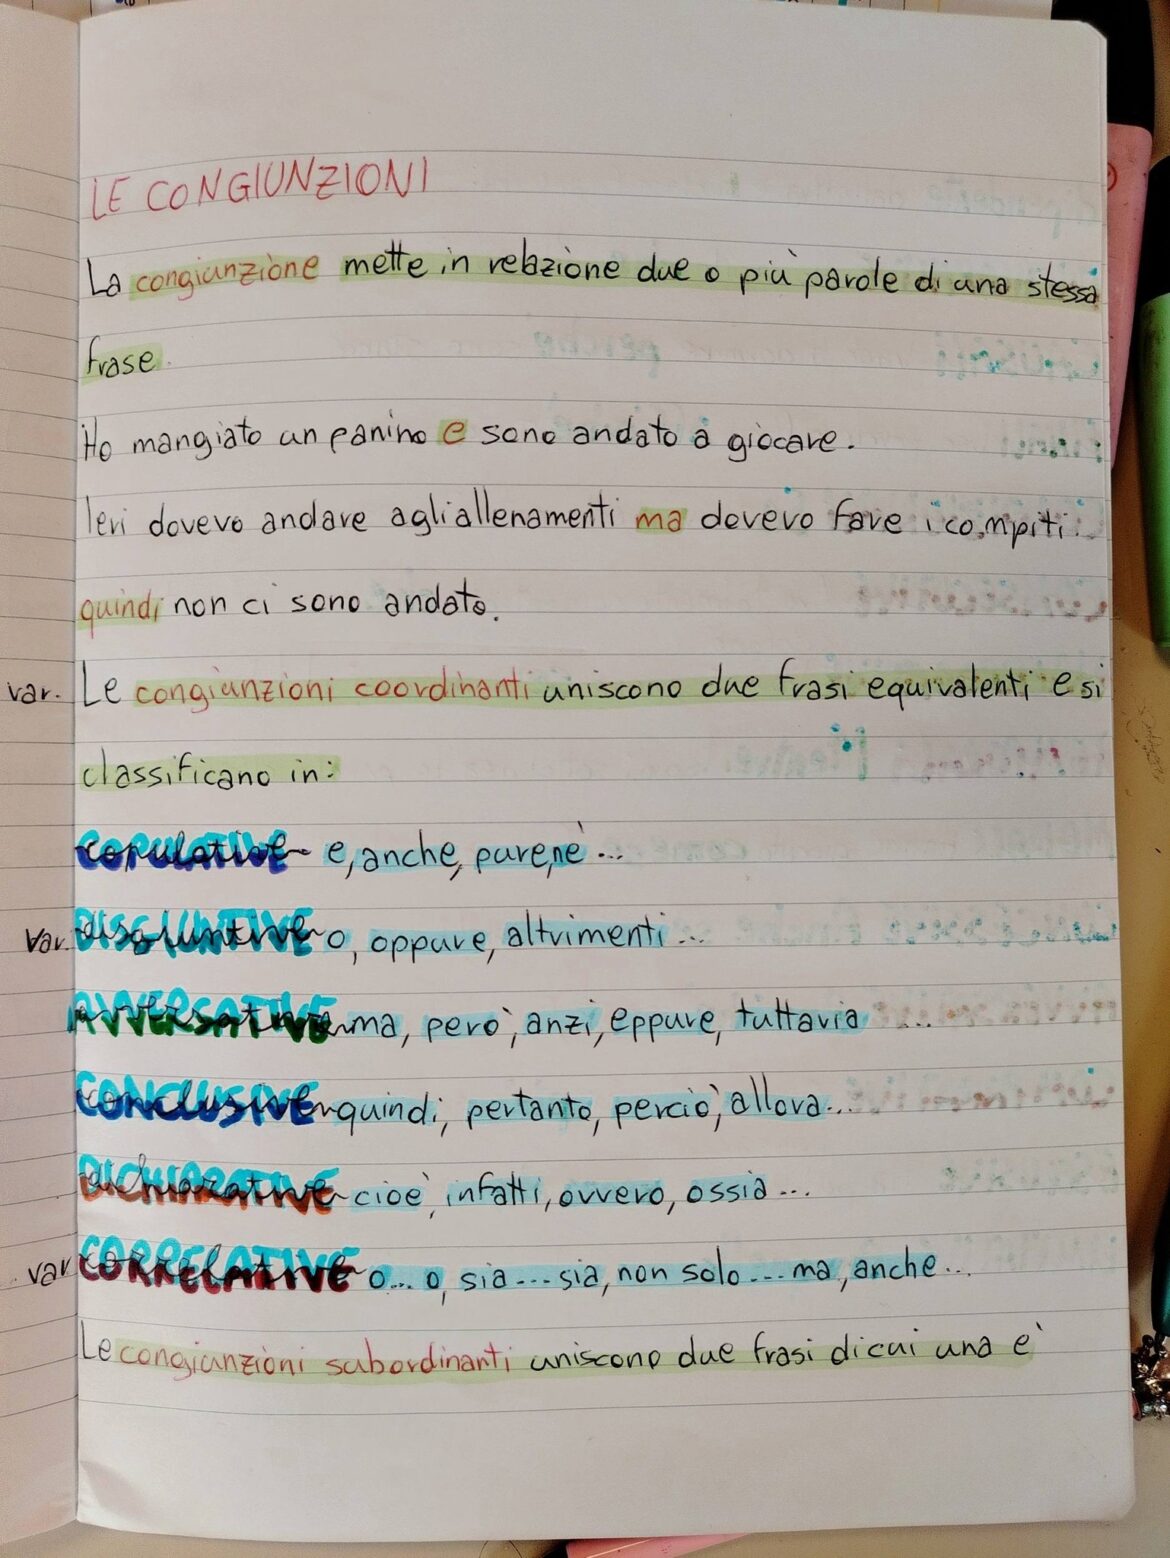 LE CONGIUNZIONI
La congiunzione mette in relazione due o più parole di una stessa
frase.
Ho mangiato un panino e sono andato a giocare.
Ieri dovevo andare agli allenamenti ma dovevo fare i compiti
quindi non ci sono andato.
var. Le congiunzioni coordinanti uniscono due frasi equivalenti e si
classificano in:
COPULATIVE e, anche, pure, nè...
var. DISGIUNTIVE o, oppure, altrimenti...
AVVERSATIVE ma, però, anzi, eppure, tuttavia ...
CONCLUSIVE quindi, pertanto, perciò, allora...
DICHIARATIVE cioè, infatti, ovvero, ossia...
var CORRELATIVE o... o, sia...sia, non solo...ma, anche...
Le congiunzioni subordinanti uniscono due frasi di cui una è